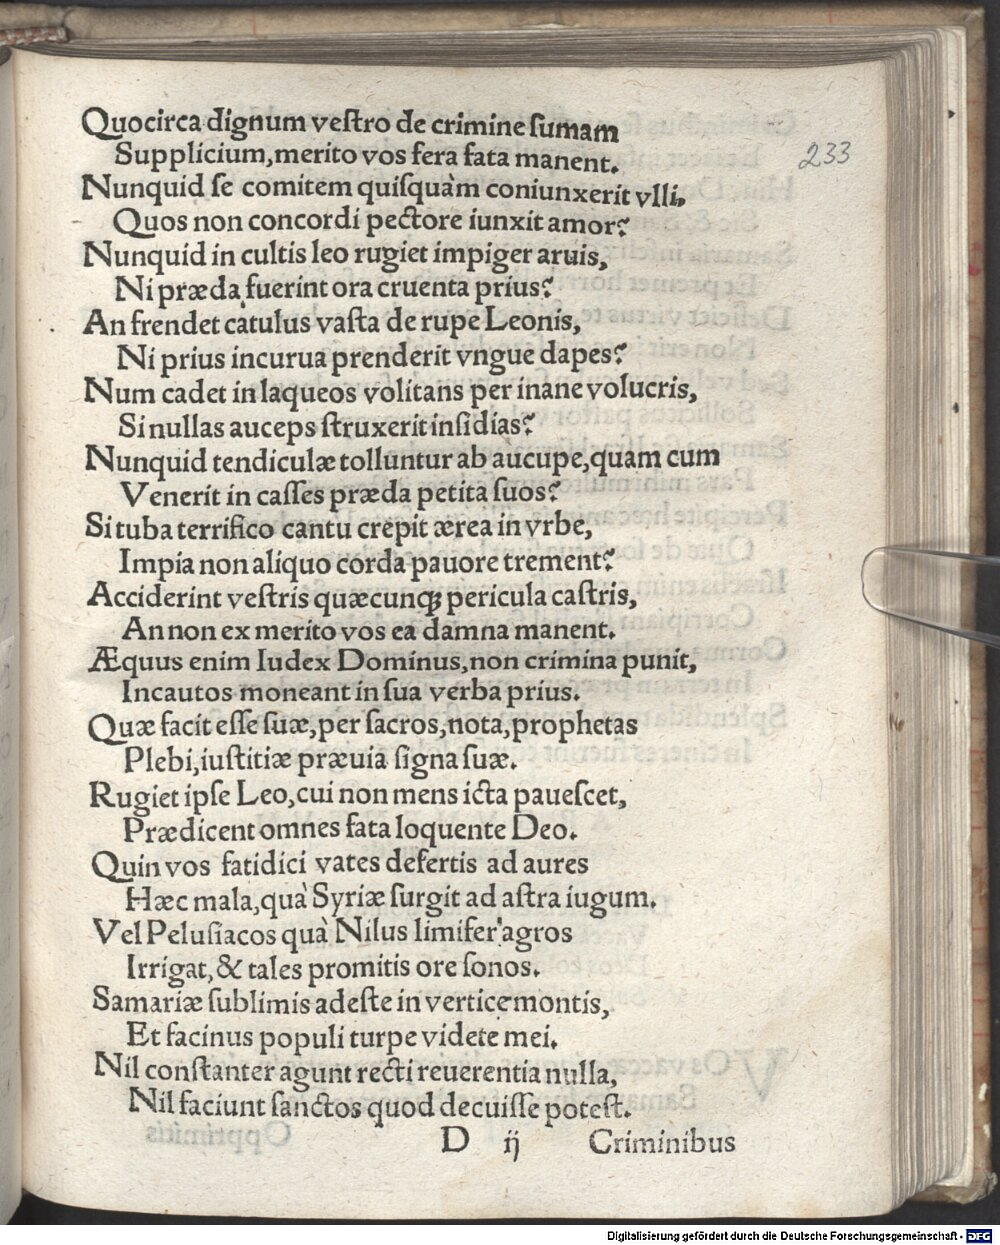 Quocirca dignum veſtro de crimine ſumam
Supplicium,merito vos fera fata manent.
Nunquid ſe comitem quiſquàm coniunxerit vlli,
Quos non concordi pectore iunxit amor?
Nunquid in cultis leo rugiet impiger aruis,
Ni præda fuerint ora cruenta prius?
An frendet catulus vaſta de rupe Leonis,
Ni prius incurua prenderit vngue dapes?
Num cadet in laqueos volitans per inane volucris,
Si nullas auceps ſtruxerit inſidias?
Nunquid tendiculæ tolluntur ab aucupe,quam cum
Venerit in caſſes præda petita ſuos?
Si tuba terrifico cantu crepit ærea in vrbe,
Impia non aliquo corda pauore trement?
Acciderint veſtris quæcunqꝫ pericula caſtris,
An non ex merito vos ea damna manent.
Æquus enim Iudex Dominus,non crimina punit,
Incautos moneant in ſua verba prius.
Quæ facit eſſe ſuæ,per ſacros,nota,prophetas
Plebi,iuſtitiæ præuia ſigna ſuæ.
Rugiet ipſe Leo,cui non mens icta paueſcet,
Prædicent omnes fata loquente Deo.
Quin vos fatidici vates defertis ad aures
Hæc mala,quà Syriæ ſurgit ad aſtra iugum.
Vel Peluſiacos quà Nilus limifer agros
Irrigat,& tales promitis ore ſonos.
Samariæ ſublimis adeſte in vertice montis,
Et facinus populi turpe videte mei.
Nil conſtanter agunt recti reuerentia nulla,
Nil faciunt ſanctos quod decuiſſe poteſt.
D ij Criminibus
233
Digitalisierung gefördert durch die Deutsche Forschungsgemeinschaft - DFG